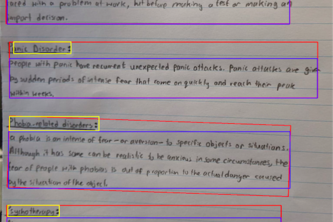 ated with a problem at work, but before making a test or making an
import decision.
Panic Disorder:
People with panic have recurrent unexpected panic attacks. Panic attacks are
by sudden periods of intense fear that come on quickly and reach their peak
within
Phobia-related disorders:
a phobia is an intense of fear - or aversion - to specific objects or situations.
Although it has some can be realistic to be anxious in some circumstances, the
fear of people with phobias is out of proportion to the actual danger
by the situation of the object.
Psychotherapy: